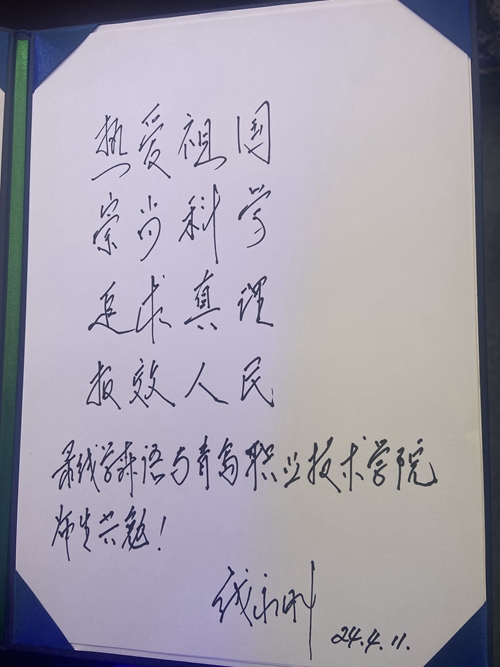 热爱祖国
崇尚科学
追求真理
报效人民
录钱学森语与青岛职业技术学院
师生共勉!
钱永刚
24.4.11.